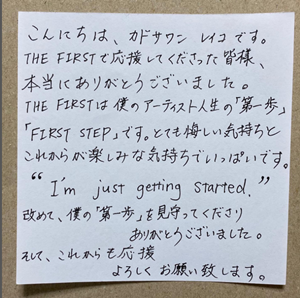 こんにちは、カドサワン レイコ です。
THE FIRSTで応援してくださった皆様、
本当にありがとうございました。
THE FIRSTは僕のアーティスト人生の「第一歩」
「FIRST STEP」です。とても悔しい気持ちと
これからが楽しみな気持ちでいっぱいです。
“I'm just getting started.”
改めて、僕の「第一歩」を見守ってくださり
ありがとうございました。
そして、これからも応援
よろしくお願い致します。